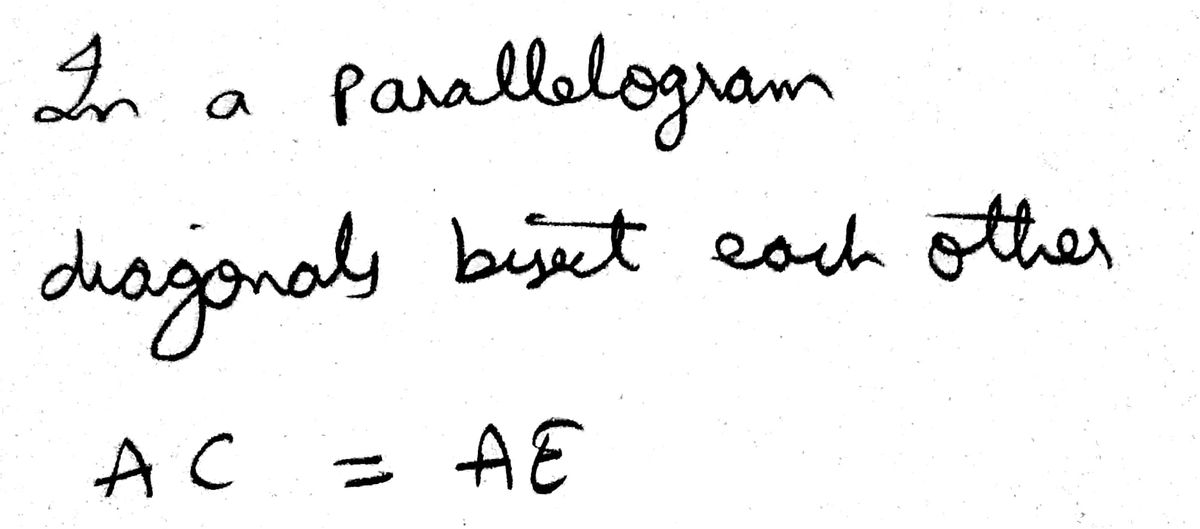 In a parallelogram
diagonals bisect each other
AC = AE